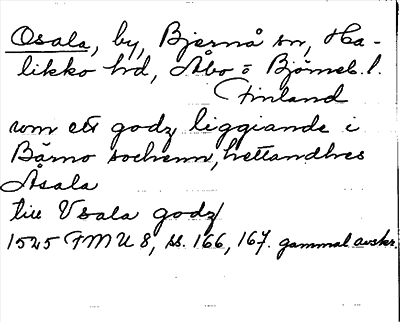 Osala, by, Bjernå sn, Ha-
likko hd, Åbo o Björneb. l.
Finland
som ett godz liggiande i
Bärno sochenn, hettandhes
Åsala
till Vsala godz
1525 FMU 8, ss. 166, 167. gammal avskr.